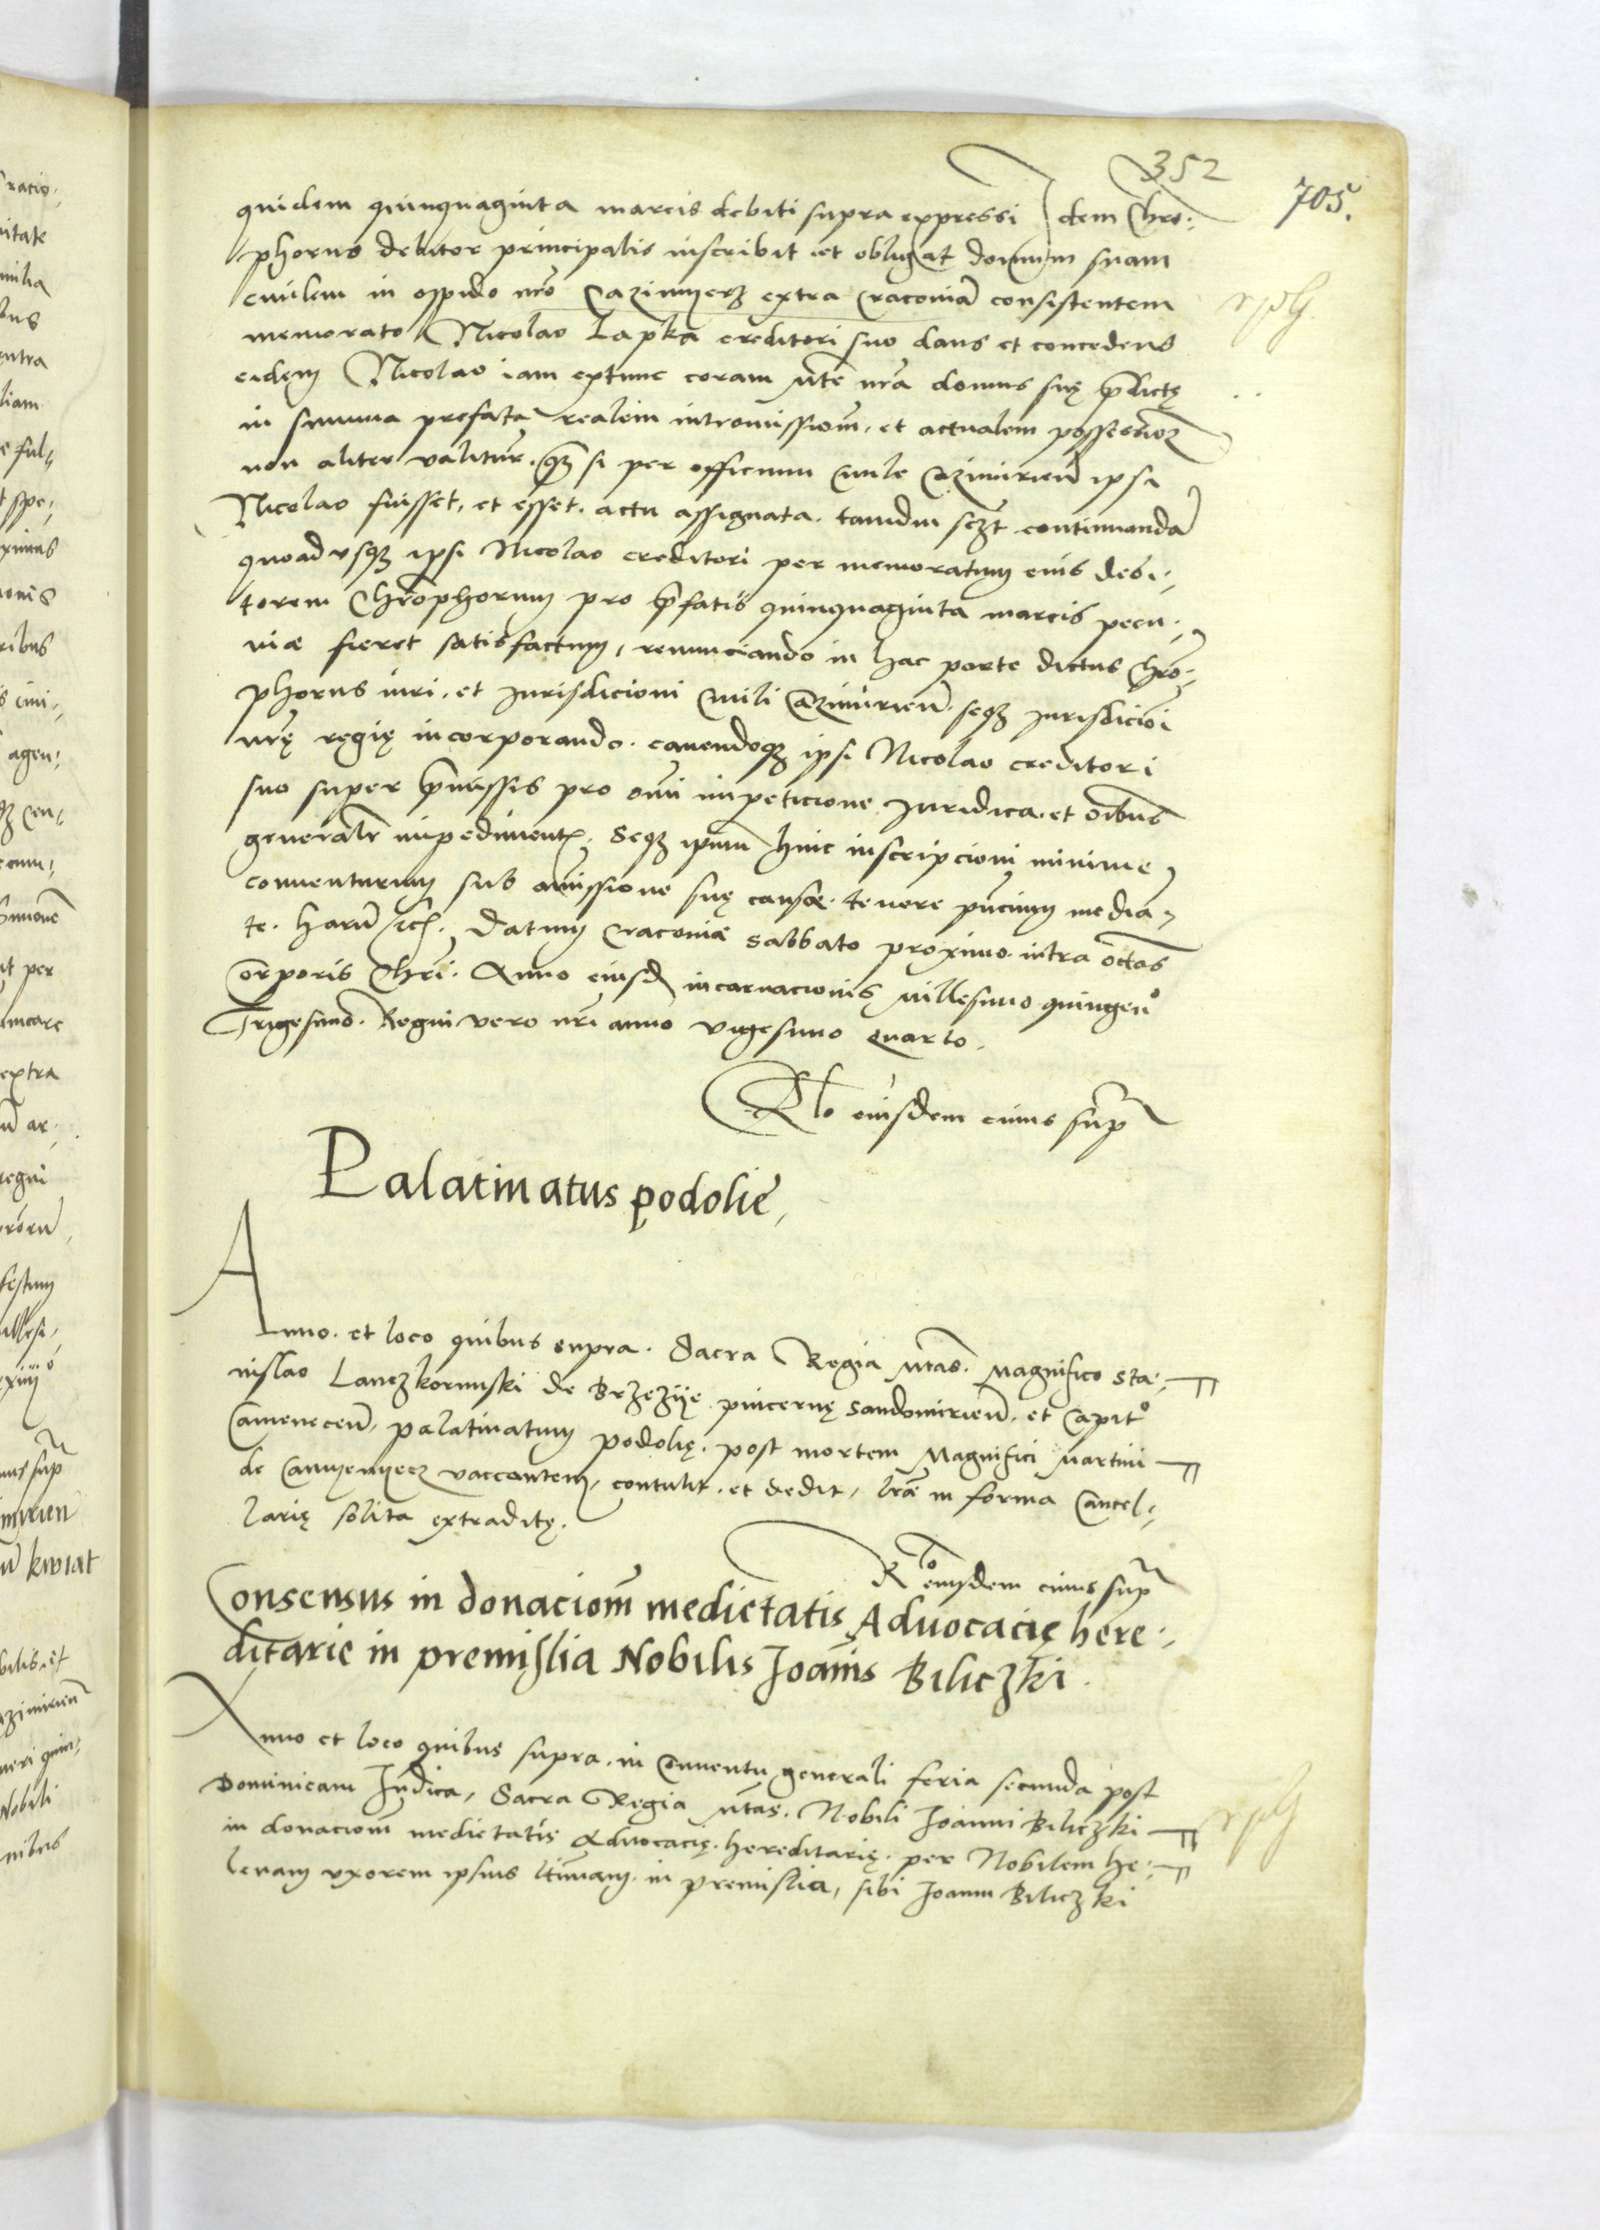 352
705.
quidem quinquaginta marcis debiti supra expressi Idem Chro-
phorus debitor principalis inscribit et obligat domum suam
civilem in oppido nr̃o Cazimyerz extra Cracoviã consistentem
memorato Nicolao Lapka creditori suo dans et concedens
eidem Nicolao iam extunc coram Mte nr̃a domus suę p̃dictę
in summa prefata realem intromissionẽ, et actualem possessionẽ
non aliter valiturã. qz si per officium civile Cazimirieñ ipsi
Nicolao fuisset, et esset. actu assignata. tamdiu continuandã
quoadusqz ipsi Nicolao creditori per memoratum eius debi-
torem Chrõphorum pro p̃fatis quinquaginta marcis pecu-
niæ fieret satisfactum, renunciando in hac parte dictus Chrõ-
phorus iuri. et Jurisdicioni civili Cazimirieñ. seqz Jurisdicioni
nr̃ę regię incorporando. cavendoqz ipsi Nicolao creditori
suo super p̃missis pro omni impeticione Juridica. et oĩbus
generalr̃ impedimentis. Seqz ipsum huic inscripcioni minime
conventurum sub amissione suę causæ. tenore pñcium median-
te. harũ Datum Cracoviæ sabbato proximo. intra octavas
Corporis Chri. Anno eiusd̃ incarnacionis millesimo quingen̊
Trigesimo. Regni vero nr̃i anno vigesimo quarto.
Rlo eiusdem cuius supr̃
Palatinatus podolie,
Anno. et loco quibus supra. Sacra Regia Mtas. Magnifico Sta-
nislao Lanczkorunski de Brzezije pincernę Sandomirieñ. et Capit̊
Cameneceñ, palatinatum podolię. post mortem Magnifici Martini
de Camyenyecz vaccantem, contulit. et dedit, lr̃æ in forma Cancel-
larię solita extraditę.
Rlo eiusdem cuius supr̃
Consensus in donacionẽ medietatis Advocacię here-
ditarie in premislia Nobilis Joañis Biliczki.
Anno et loco quibus supra. in Conventu generali feria secunda post
Dominicam Judica, Sacra Regia Mtas. Nobili Joanni Biliczki
in donacionẽ medietatis Advocacię. hereditarię. per Nobilem he-
lenam uxorem ipsius ltimam. in premislia, sibi Joanni Biliczki